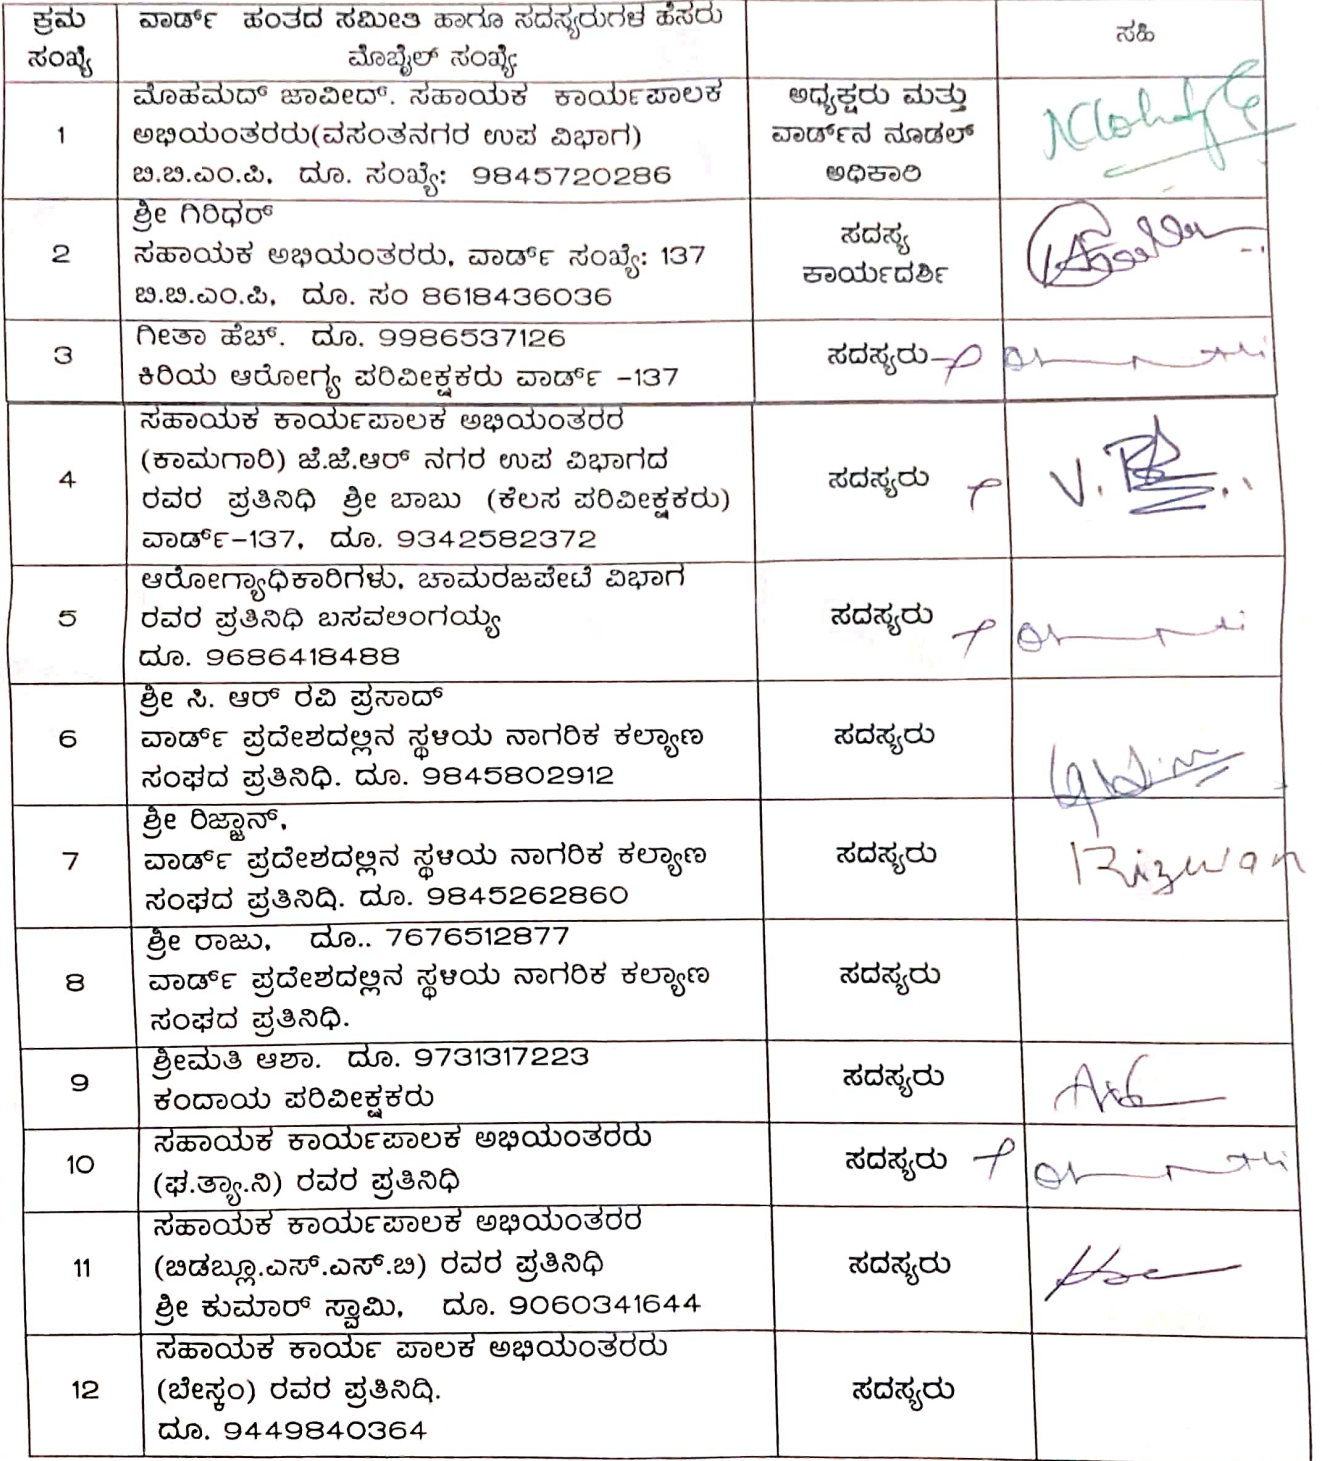 ಕ್ರಮ ಸಂಖ್ಯೆ
ವಾರ್ಡ್ ಹಂತದ ಸಮೀತಿ ಹಾಗೂ ಸದಸ್ಯರುಗಳ ಹೆಸರು
ಮೊಬೈಲ್ ಸಂಖ್ಯೆ
ಸಹಿ
1
ಮೊಹಮದ್ ಜಾವೀದ್. ಸಹಾಯಕ ಕಾರ್ಯಪಾಲಕ
ಅಭಿಯಂತರರು(ವಸಂತನಗರ ಉಪ ವಿಭಾಗ)
ಬಿ.ಬಿ.ಎಂ.ಪಿ, ದೂ. ಸಂಖ್ಯೆ: 9845720286
ಅಧ್ಯಕ್ಷರು ಮತ್ತು
ವಾರ್ಡ್‌ನ ನೂಡಲ್
ಅಧಿಕಾರಿ
2
ಶ್ರೀ ಗಿರಿಧರ್
ಸಹಾಯಕ ಅಭಿಯಂತರರು, ವಾರ್ಡ್ ಸಂಖ್ಯೆ: 137
ಬಿ.ಬಿ.ಎಂ.ಪಿ, ದೂ. ಸಂ 8618436036
ಸದಸ್ಯ
ಕಾರ್ಯದರ್ಶಿ
3
ಗೀತಾ ಹೆಚ್. ದೂ. 9986537126
ಕಿರಿಯ ಆರೋಗ್ಯ ಪರಿವೀಕ್ಷಕರು ವಾರ್ಡ್ -137
ಸದಸ್ಯರು
4
ಸಹಾಯಕ ಕಾರ್ಯಪಾಲಕ ಅಭಿಯಂತರರ
(ಕಾಮಗಾರಿ) ಜೆ.ಜೆ.ಆರ್ ನಗರ ಉಪ ವಿಭಾಗದ
ರವರ ಪ್ರತಿನಿಧಿ ಶ್ರೀ ಬಾಬು (ಕೆಲಸ ಪರಿವೀಕ್ಷಕರು)
ವಾರ್ಡ್-137, ದೂ. 9342582372
ಸದಸ್ಯರು
5
ಆರೋಗ್ಯಾಧಿಕಾರಿಗಳು, ಚಾಮರಜಪೇಟೆ ವಿಭಾಗ
ರವರ ಪ್ರತಿನಿಧಿ ಬಸವಲಿಂಗಯ್ಯ
ದೂ. 9686418488
ಸದಸ್ಯರು
6
ಶ್ರೀ ಸಿ. ಆರ್ ರವಿ ಪ್ರಸಾದ್
ವಾರ್ಡ್ ಪ್ರದೇಶದಲ್ಲಿನ ಸ್ಥಳಿಯ ನಾಗರಿಕ ಕಲ್ಯಾಣ
ಸಂಘದ ಪ್ರತಿನಿಧಿ. ದೂ. 9845802912
ಸದಸ್ಯರು
7
ಶ್ರೀ ರಿಜ್ವಾನ್,
ವಾರ್ಡ್ ಪ್ರದೇಶದಲ್ಲಿನ ಸ್ಥಳಿಯ ನಾಗರಿಕ ಕಲ್ಯಾಣ
ಸಂಘದ ಪ್ರತಿನಿದಿ. ದೂ. 9845262860
ಸದಸ್ಯರು
Rizwan
8
ಶ್ರೀ ರಾಜು, ದೂ.. 7676512877
ವಾರ್ಡ್ ಪ್ರದೇಶದಲ್ಲಿನ ಸ್ಥಳಿಯ ನಾಗರಿಕ ಕಲ್ಯಾಣ
ಸಂಘದ ಪ್ರತಿನಿಧಿ.
ಸದಸ್ಯರು
9
ಶ್ರೀಮತಿ ಆಶಾ. ದೂ. 9731317223
ಕಂದಾಯ ಪರಿವೀಕ್ಷಕರು
ಸದಸ್ಯರು
10
ಸಹಾಯಕ ಕಾರ್ಯಪಾಲಕ ಅಭಿಯಂತರರು
(ಘ.ತ್ಯಾ.ನಿ) ರವರ ಪ್ರತಿನಿಧಿ
ಸದಸ್ಯರು
11
ಸಹಾಯಕ ಕಾರ್ಯಪಾಲಕ ಅಭಿಯಂತರರ
(ಬಿಡಬ್ಲೂ.ಎಸ್.ಎಸ್.ಬಿ) ರವರ ಪ್ರತಿನಿಧಿ
ಶ್ರೀ ಕುಮಾರ್ ಸ್ವಾಮಿ, ದೂ. 9060341644
ಸದಸ್ಯರು
12
ಸಹಾಯಕ ಕಾರ್ಯ ಪಾಲಕ ಅಭಿಯಂತರರು
(ಬೇಸ್ಕಂ) ರವರ ಪ್ರತಿನಿದಿ.
ದೂ. 9449840364
ಸದಸ್ಯರು